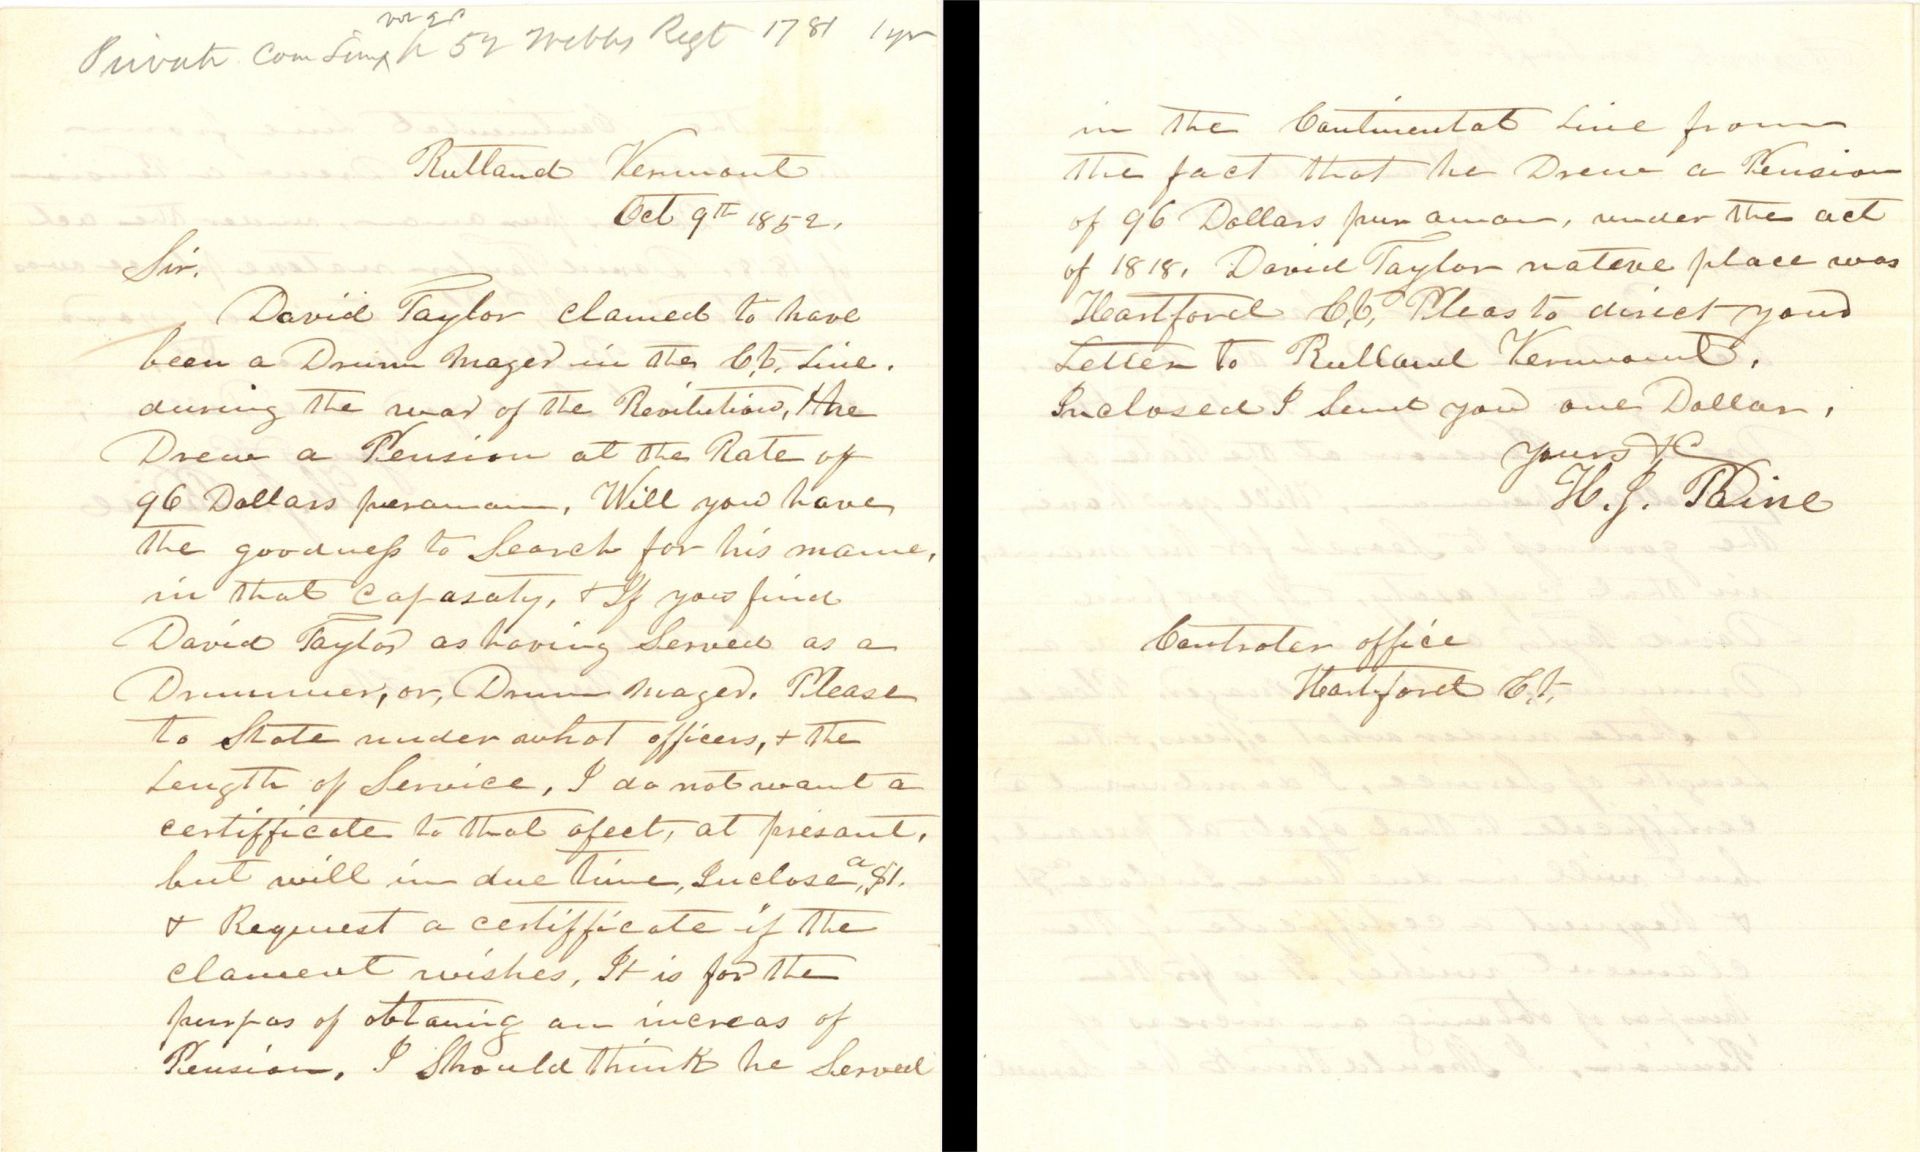 Private Com 52 Webbs Regt 1781 1 yr
Rutland Vermont
Oct 9th 1852.
Sir.
David Taylor clamed to have
been a Drum Mager in the Ct, Line.
during the war of the Revilution, +he
Drew a Pension at the Rate of
96 Dollars peranam, Will you have
the goodness to Search for his name,
in that capasaty, + If you find
David Taylor as having Served as a
Drummer, or, Drum Mager. Please
to State under what officers, + the
Length of Service, I do not want a
certifficate to that afect, at presant,
but will in due time, Inclose a $1.
+ Request a certifficate if the
clament wishes, It is for the
purpas of obtaning an increas of
Pension, I Should think he Served
in the Continental Line from
the fact that he Drew a Pension
of 96 Dollars pur anam, under the act
of 1818. David Taylor nateve place was
Hartford Ct, Pleas to direct your
Letter to Rutland Vermont,
Inclosed I Send you one Dollar,
Yours &C
H. J. Paine
Controler office
Hartford Ct,